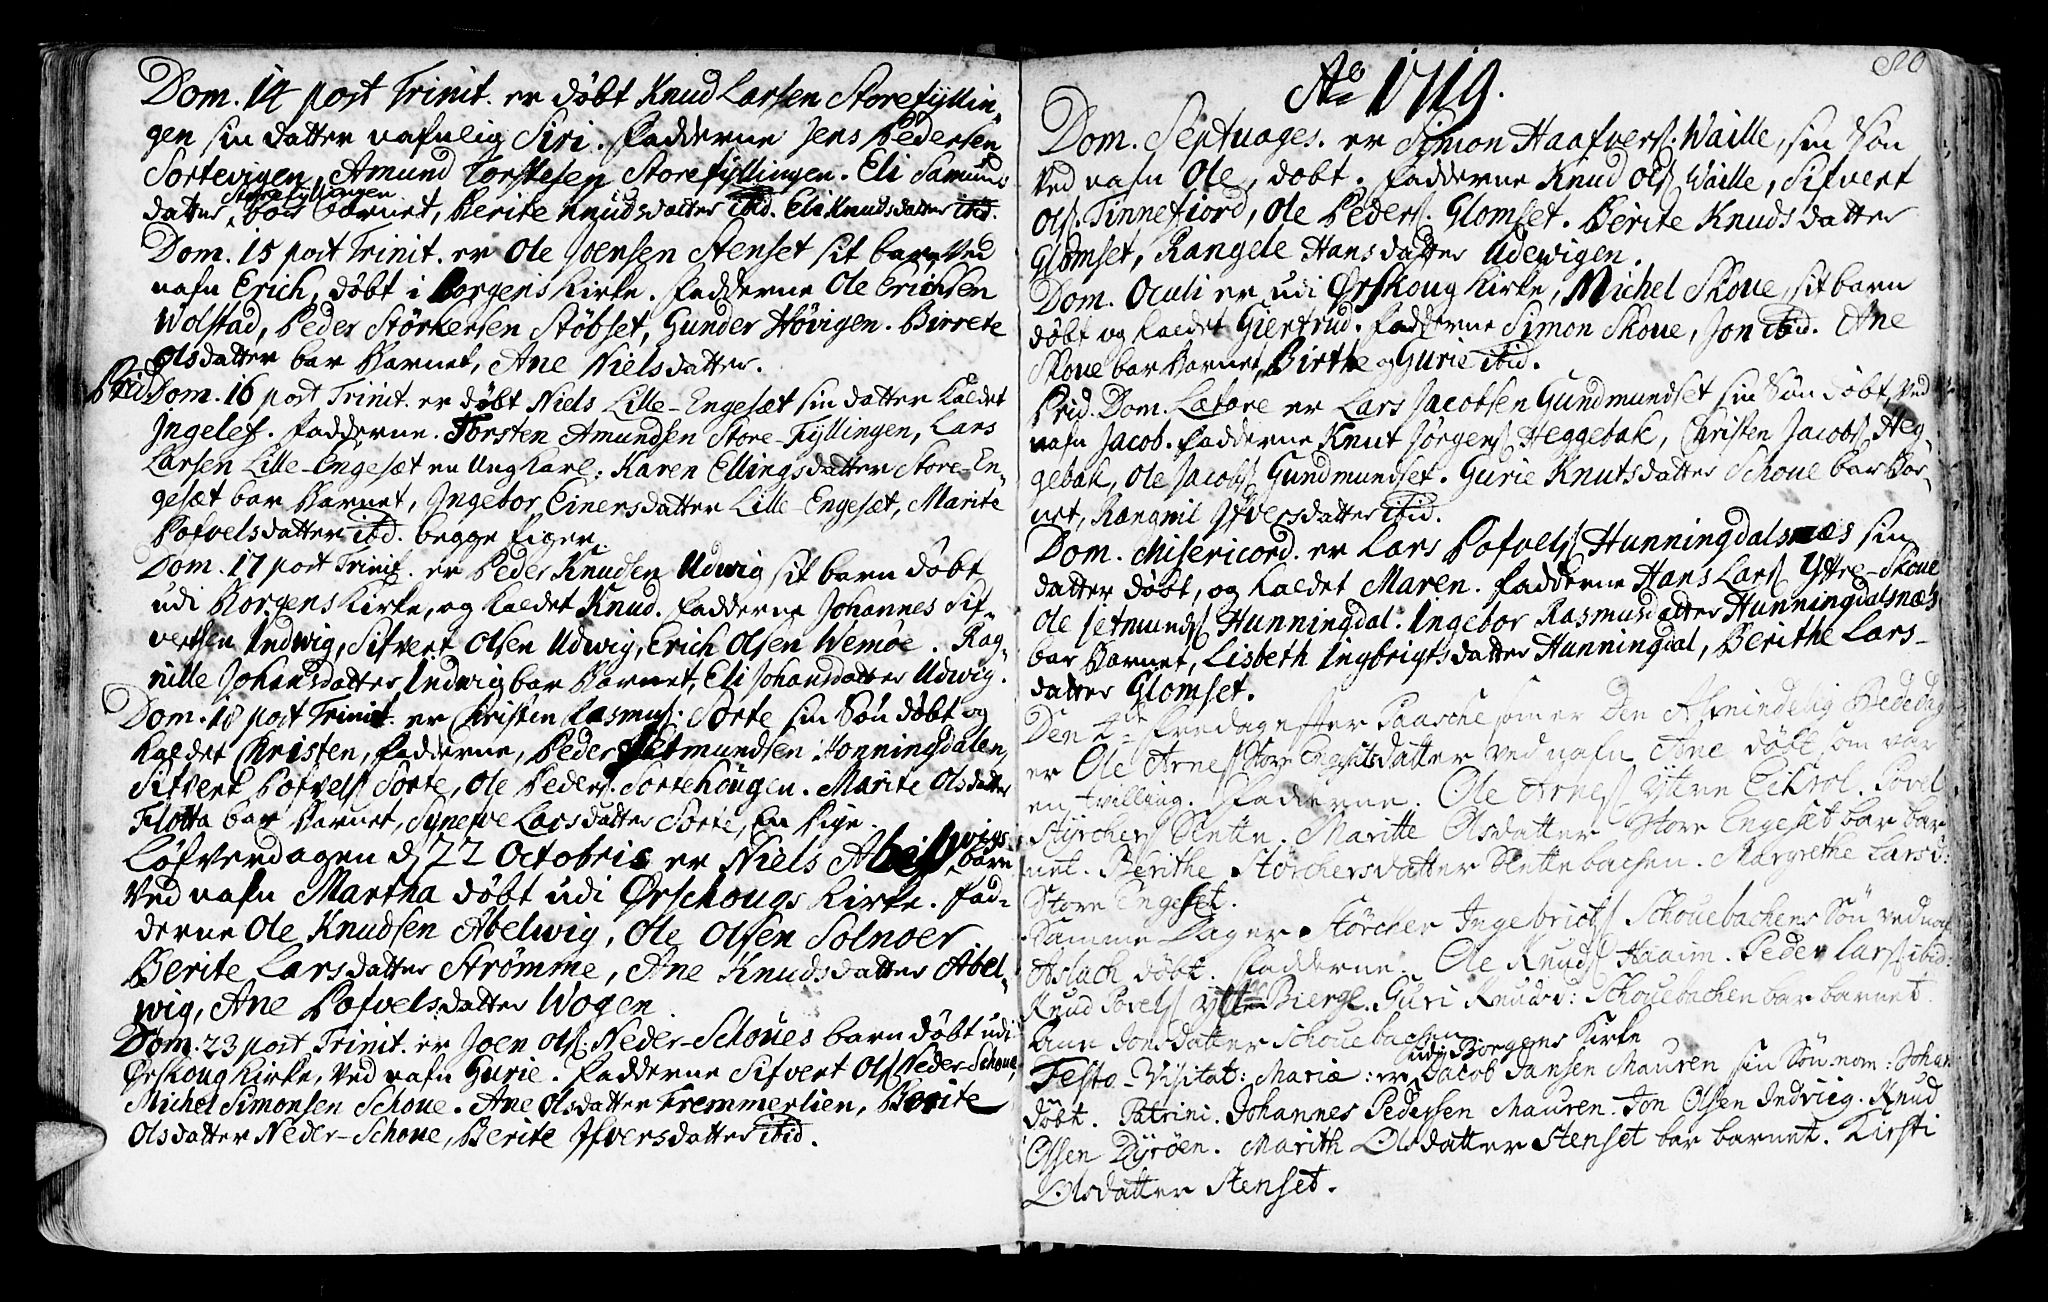 Dom. 14 post Trinit. er døbt Knud Larsen Storefyllin-
gen sin datter nafnlig Siri. Fadderne Jens Pedersen
Sortevigen, Amund Torstesen Storefyllingen. Eli Samuns
Storefyllingen
datter bar barnet, Berite Knudsdatter ibid. Eli Knudsdatter ibid.
Dom. 15 post Trinit. er Ole Joensen Stenset sit barn Ved
nafn Erich, døbt i Borgens Kirke. Fadderne Ole Erichsen
Wolstad, Peder Størkersen Støbset, Gunder Høvigen. Birrete
Olsdatter bar Barnet, Ane Nielsdatter.
Prid. Dom. 16 post Trinit. er døbt Niels Lille-Engesæt sin datter kaldet
Ingelef. Fadderne. Torsten Amundsen Store-Fyllingen, Lars
Larsen Lille-Engesæt en Ung Karl: Karen Ellingsdatter Store-En-
gesæt bar Barnet, Ingebor Einersdatter Lille-Engesæt, Marite
Pofvelsdatter ibd. begge Piger.
Dom. 17 post Trinit. er Peder Knudsen Udwig sit barn døbt
udi Borgens Kirke, og kaldet Knud. Fadderne Johannes Sif-
vertsen Indwig, Sifvert Olsen Udwig, Erich Olsen Wemøe. Rag-
nille Johansdatter Indwig bar Barnet, Eli Johansdatter Udwig.
Dom. 18 post Trinit. er Christen Rasmus: Sorte sin Søn døbt og
kaldet Christen, Fadderne, Peder Setmundsen Honningdalen,
Sifvert Pofvels Sorte, Ole Peders. Sortehougen. Marite Olsdatter
Flotta bar Barnet, Synewe Larsdatter Sorte, En Pige.
Løfverdagen d. 22 Octobris er Niels Abelwigs barn
Ved nafn Martha døbt udi Ørschougs Kirke. Fad-
derne Ole Knudsen Abelwig, Ole Olsen Solnoer
Berite Larsdatter Strømme, Ane Knudsdatter Abel-
wig, Ane Pofvelsdatter Wogen.
Dom. 23 post Trinit. er Joen Ols: Neder-Schoues barn døbt udi
Ørskoug Kirke, Ved nafn Gurie. Fadderne Sifvert Ols Neder-Schoue,
Michel Simonsen Schoue. Ane Olsdatter Fremmerlien, Berite
Olsdatter Neder-Schoue, Berite Ifversdatter ibid.
80
Ao 1719.
Dom. Septuages. er Simon Haafvers: Waille, sin Søn
Ved nafn Ole, døbt. Fadderne Knud Ols Waille, Sifvert
Ols. Tinnefiord, Ole Peders. Glomset. Berite Knudsdatter
Glomset, Rangele Hansdatter Udewigen.
Dom. Oculi er udi Ørskoug Kirke, Michel Skoue, sit barn
døbt og kaldet Giertrud. Fadderne Simon Skoue, Jon ibid. Ane
Skoue bar Barnet, Birthe og Gurie ibid.
Prid. Dom. Lætare er Lars Jacobsen Gundmundset sin Søn døbt, Ved
nafn Jacob. Fadderne Knut Jørgens Heggebak, Christen Jacobs Heg-
gebak, Ole Jacobs Gundmundset. Gurie Knutsdatter Schoue bar Bar-
net, Rangnil Ifversdatter ibid.
Dom. Misericord. er Lars Pofvels Hunningdalsnæs sin
datter døbt, og kaldet Maren. Fadderne Hans Lars Yttre-Skoue
Ole Setmunds Hunningdal. Ingebor Rasmusdatter Hunningdalsnæs
bar Barnet, Lisbeth Ingbrigtsdatter Hunningdal, Berithe Lars-
datter Glomset.
Den 4de Fredag efter Paasche som er Den Almindelig Bededag
er Ole Arnes Store Engsets datter ved nafn Ane døbt, som var
en tvilling. Fadderne. Ole Arnes Yttre Eikrol. Povel
Styrchers Slette. Maritte Olsdatter Store Engesæt bar bar
net. Berithe Størchersdatter Slettebachen. Margrethe Larsd:
Store Engeset.
Samme Dag er Størcher Ingebricts Schouebachens Søn ved naf
Aslach døbt. Fadderne. Ole Knuds Haaim. Peder Lars ibid:
Knud Povels ytte Bierge. Guri Knudsd: Schouebachen bar barnet.
Ane Jonsdatter Schouebachen
udi Borgens Kirke
Festo-Visitat: Mariæ: er Jacob Jansen Mauren sin Søn nom: Johan
døbt. Patrini. Johannes Pedersen Mauren. Jon Olsen Indvieg. Knud
Olsen Dyrøen. Marith Olsdatter Stenset bar barnet. Kirsti
Olsdatter Stenset.